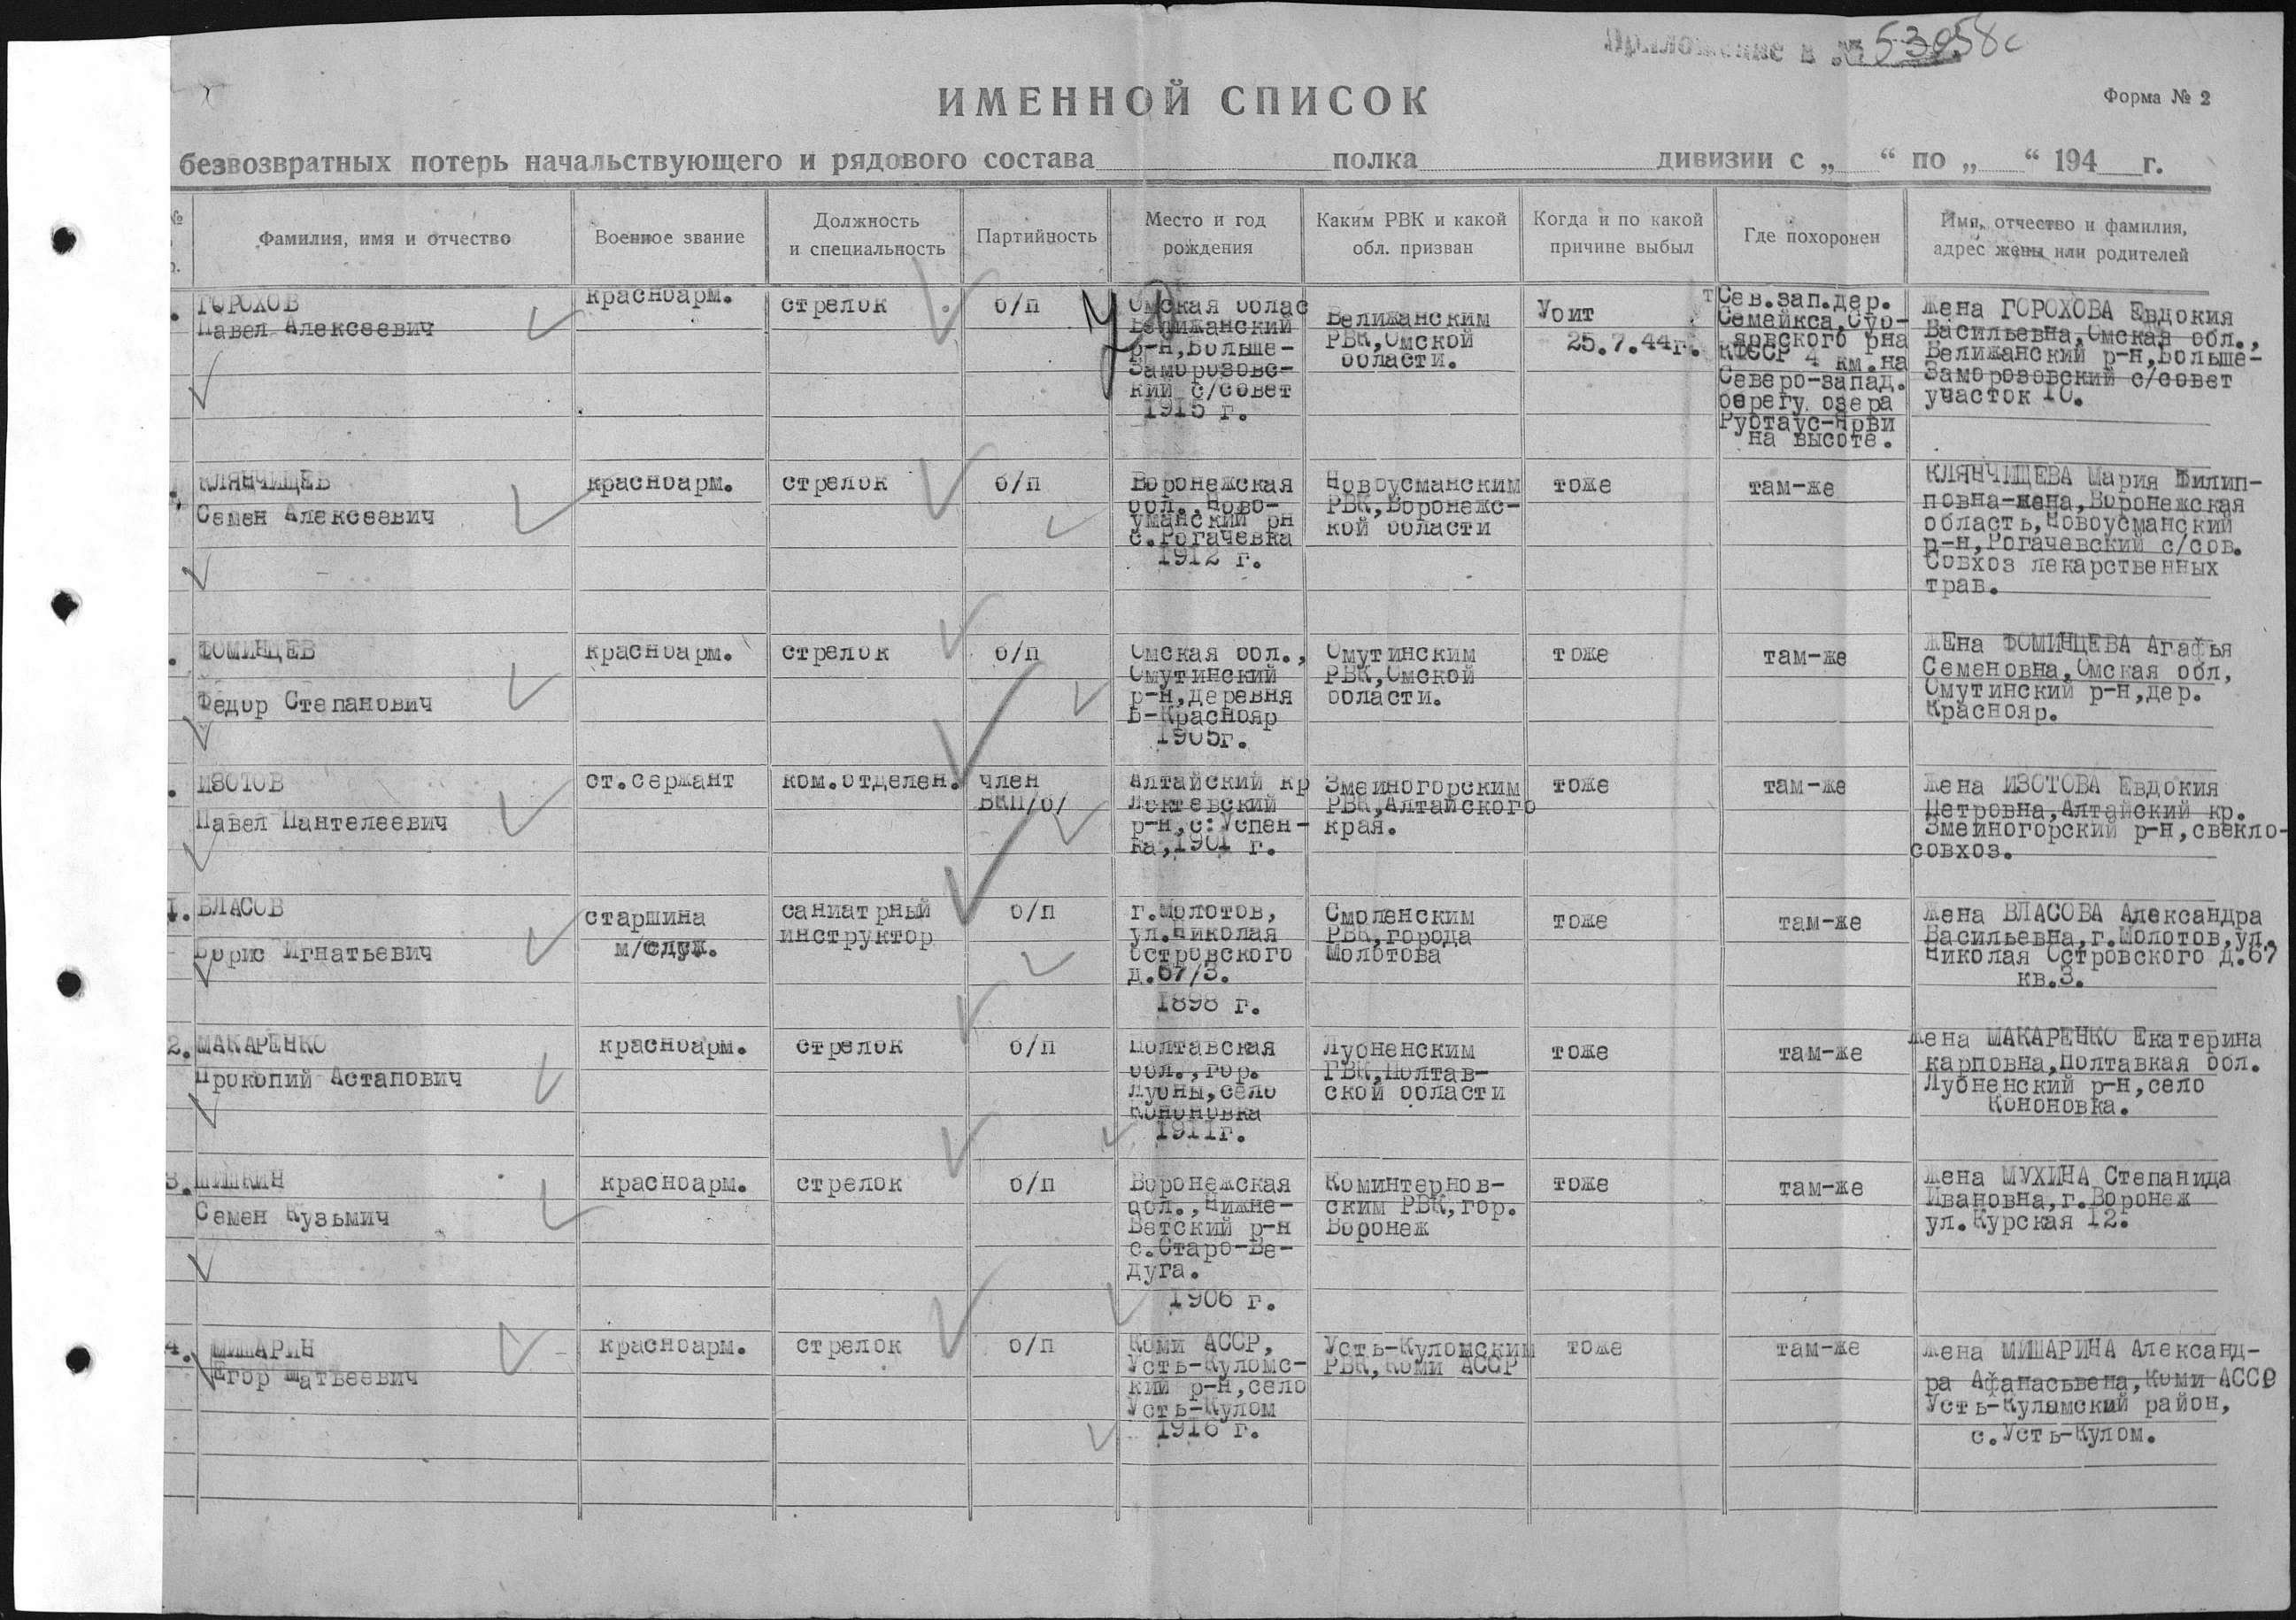 Приложение к № 53058с
ИМЕННОЙ СПИСОК
Форма № 2
безвозвратных потерь начальствующего и рядового состава полка дивизии с „ “ по „ “ 194 г.
№
Фамилия, имя и отчество
Военное звание
Должность
и специальность
Партийность
Место и год
рождения
Каким РВК и какой
обл. призван
Когда и по какой
причине выбыл
Где похоронен
Имя, отчество и фамилия,
адрес жены или родителей
ГОРОХОВ
Павел Алексеевич
красноарм.
стрелок
б/п
Омская облас
Велижанский
р-н,Больше-
Заморозовс-
кий с/совет
1915 г.
Велижанским
РВК,Омской
области.
Убит
25.7.44г.
Сев.зап.дер.
Семейкса,Суо-
ярвского рна
КФССР 4 км.на
Северо-запад.
берегу озера
Руотаус-Ярви
на высоте.
Жена ГОРОХОВА Евдокия
Васильевна,Омская обл.,
Велижанский р-н,Больше-
Заморозовский с/совет
участок 10.
КЛЯНЧИЩЕВ
Семен Алексеевич
красноарм.
стрелок
б/п
Воронежская
обл.,Ново-
уманский рн
с.Рогачевка
1912 г.
Новоусманским
РВК,Воронежс-
кой области
тоже
там-же
КЛЯНЧИЩЕВА Мария Филип-
повна-жена,Воронежская
область,Новоусманский
р-н,Рогачевский с/сов.
Совхоз лекарственных
трав.
ФОМИНЦЕВ
Федор Степанович
красноарм.
стрелок
б/п
Омская обл.,
Омутинский
р-н,деревня
Б-Краснояр
1905г.
Омутинским
РВК,Омской
области.
тоже
там-же
ЖЕна ФОМИНЦЕВА Агафья
Семеновна,Омская обл,
Омутинский р-н,дер.
Краснояр.
ИЗОТОВ
Павел Пантелеевич
ст.сержант
ком.отделен.
член
ВКП/б/
Алтайский кр
Локтевский
р-н,с:Успен-
ка,1901 г.
Змеиногорским
РВК,Алтайского
края.
тоже
там-же
Жена ИЗОТОВА Евдокия
Петровна,Алтайский кр.
Змеиногорский р-н,свекло-
совхоз.
1. ВЛАСОВ
Борис Игнатьевич
старшина
м/служ.
саниатрный
инструктор
б/п
г.Молотов,
ул.Николая
Островского
д.67/3.
1898 г.
Смоленским
РВК,города
Молотова
тоже
там-же
Жена ВЛАСОВА Александра
Васильевна,г.Молотов,ул.
Николая Островского д.67
кв.3.
2. МАКАРЕНКО
Прокопий Астапович
красноарм.
стрелок
б/п
Полтавская
обл.,гор.
Лубны,село
Кононовка
1911г.
Лубненским
РВК,Полтав-
ской области
тоже
там-же
Жена МАКАРЕНКО Екатерина
карповна,Полтавкая обл.
Лубненский р-н,село
Кононовка.
3. ШИШКИН
Семен Кузьмич
красноарм.
стрелок
б/п
Воронежская
обл.,Нижне-
Ветский р-н
с.Старо-Ве-
дуга.
1906 г.
Коминтернов-
ским РВК,гор.
Воронеж
тоже
там-же
Жена МУХИНА Степанида
Ивановна,г.Воронеж
ул.Курская 12.
4. МИШАРИН
Егор Матвеевич
красноарм.
стрелок
б/п
Коми АССР,
Усть-Куломс-
кий р-н,село
Усть-Кулом
1916 г.
Усть-Куломским
РВК,Коми АССР
тоже
там-же
Жена МИШАРИНА Александ-
ра Афанасьвена,Коми АССР
Усть-Куломский район,
с.Усть-Кулом.